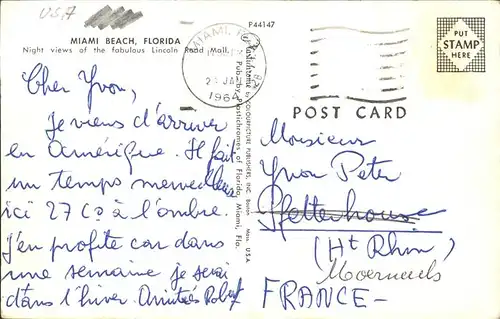 USA
MIAMI BEACH, FLORIDA
Night views of the fabulous Lincoln Road Mall.
P44147
Cher Yvon,
Je viens d'arriver
en Amérique. Il fait
un temps merveilleux
ici 27 C° à l'ombre.
J'en profite car dans
une semaine je serai
dans l'hiver. Amitiés
MIAMI,
1964
Pub. by Plastichromes of Florida, Miami, Fla.
Plastichrome by COLOURPICTURE PUBLISHERS, INC. Boston, Mass. USA
PUT
STAMP
HERE
POST CARD
Monsieur
Yvon Peter
Pfetterhouse
(Ht Rhin)
FRANCE -